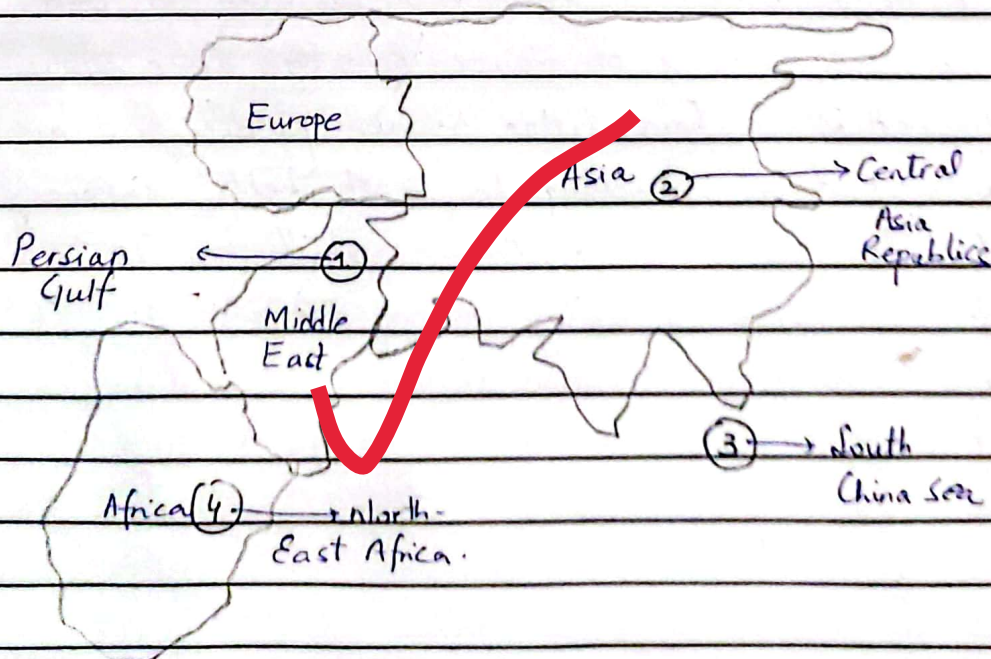 Europe
Asia ② → Central
Asia
Republics
Persian ← ①
Gulf
Middle
East
③ → South
China sea
Africa ④ → North-
East Africa.